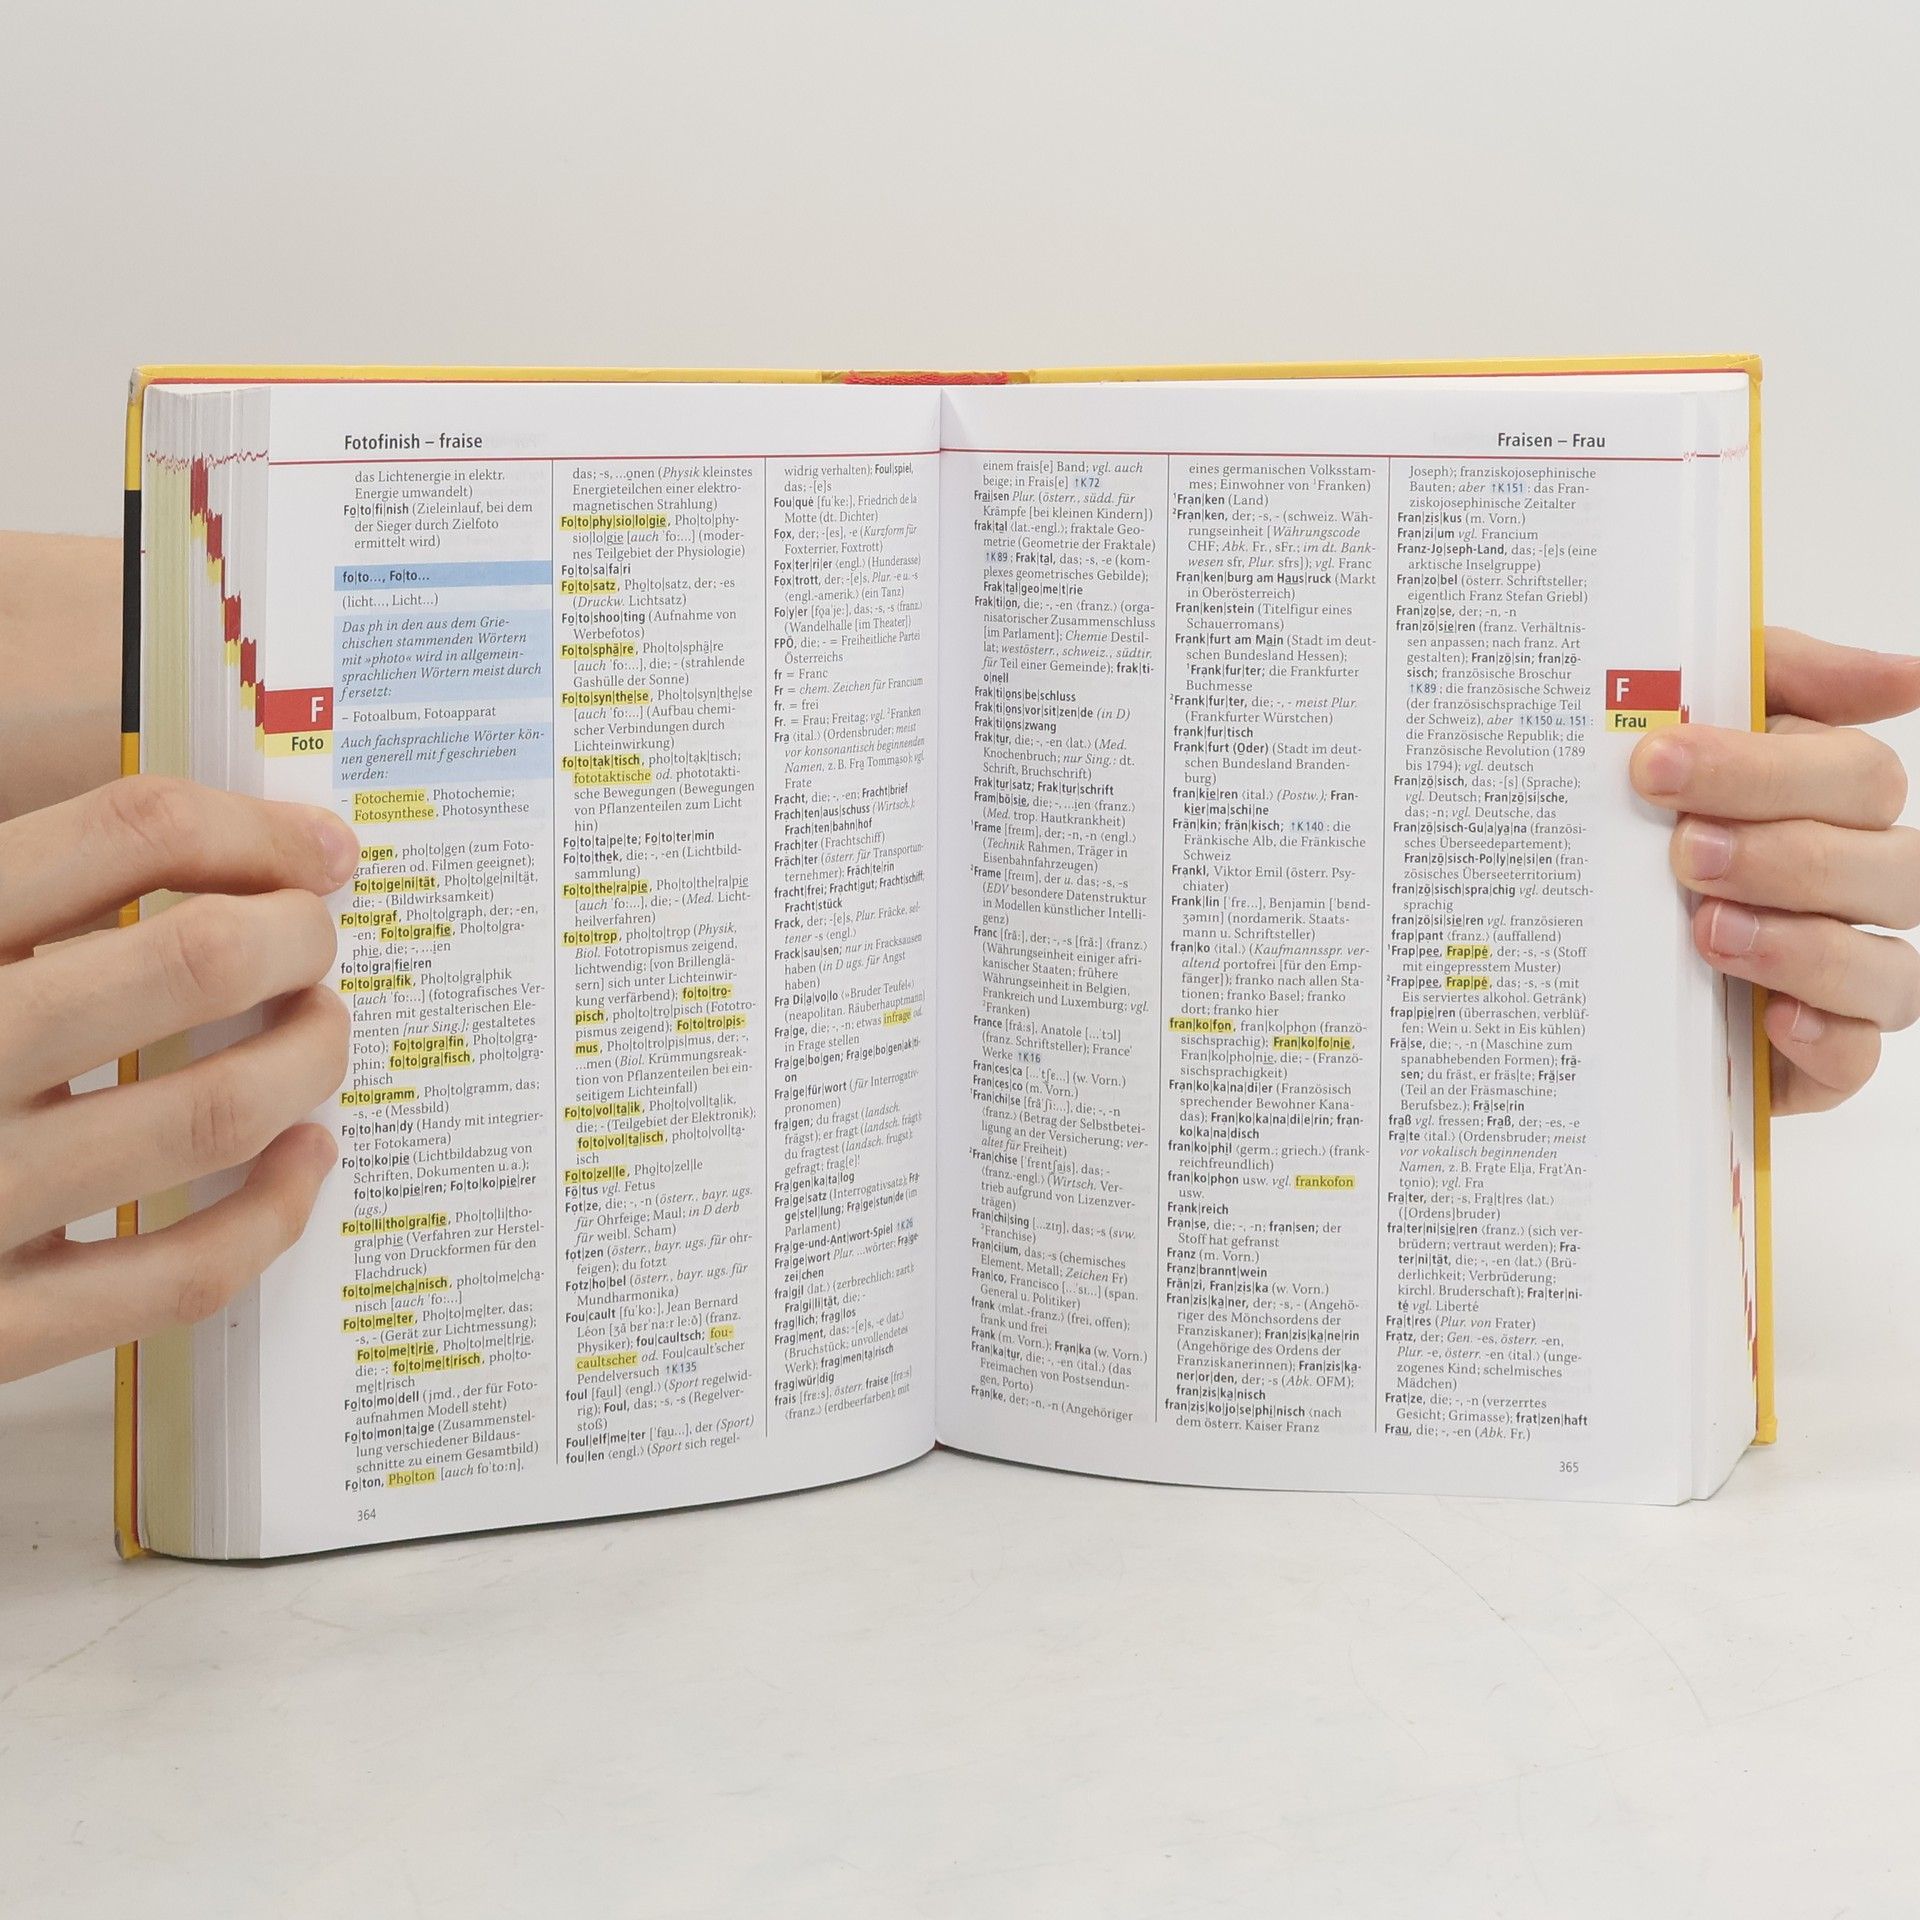 Fotofinish – fraise
das Lichtenergie in elektr.
Energie umwandelt)
Fo|to|fi|nish (Zieleinlauf, bei dem
der Sieger durch Zielfoto
ermittelt wird)
fo|to..., Fo|to...
(licht..., Licht...)
Das ph in den aus dem Grie-
chischen stammenden Wörtern
mit »photo« wird in allgemein-
sprachlichen Wörtern meist durch
f ersetzt:
– Fotoalbum, Fotoapparat
Auch fachsprachliche Wörter kön-
nen generell mit f geschrieben
werden:
– Fotochemie, Photochemie;
Fotosynthese, Photosynthese
o|gen, pho|to|gen (zum Foto-
grafieren od. Filmen geeignet);
Fo|to|ge|ni|tät, Pho|to|ge|ni|tät,
die; - (Bildwirksamkeit)
Fo|to|graf, Pho|to|graph, der; -en,
-en; Fo|to|gra|fie, Pho|to|gra-
phie, die; -, ...ien
fo|to|gra|fie|ren
Fo|to|gra|fik, Pho|to|gra|phik
[auch 'fo:...] (fotografisches Ver-
fahren mit gestalterischen Ele-
menten [nur Sing.]; gestaltetes
Foto); Fo|to|gra|fin, Pho|to|gra-
phin; fo|to|gra|fisch, pho|to|gra-
phisch
Fo|to|gramm, Pho|to|gramm, das;
-s, -e (Messbild)
Fo|to|han|dy (Handy mit integrier-
ter Fotokamera)
Fo|to|ko|pie (Lichtbildabzug von
Schriften, Dokumenten u. a.);
fo|to|ko|pie|ren; Fo|to|ko|pie|rer
(ugs.)
Fo|to|li|tho|gra|fie, Pho|to|li|tho-
gra|phie (Verfahren zur Herstel-
lung von Druckformen für den
Flachdruck)
fo|to|me|cha|nisch, pho|to|me|cha-
nisch [auch 'fo:...]
Fo|to|me|ter, Pho|to|me|ter, das;
-s, - (Gerät zur Lichtmessung);
Fo|to|me|t|rie, Pho|to|me|t|rie,
die; -; fo|to|me|t|risch, pho|to-
me|t|risch
Fo|to|mo|dell (jmd., der für Foto-
aufnahmen Modell steht)
Fo|to|mon|ta|ge (Zusammenstel-
lung verschiedener Bildaus-
schnitte zu einem Gesamtbild)
Fo|ton, Pho|ton [auch fo'to:n],
364
F
Foto
das; -s, ...onen (Physik kleinstes
Energieteilchen einer elektro-
magnetischen Strahlung)
Fo|to|phy|sio|lo|gie, Pho|to|phy-
sio|lo|gie [auch 'fo:...] (moder-
nes Teilgebiet der Physiologie)
Fo|to|sa|fa|ri
Fo|to|satz, Pho|to|satz, der; -es
(Druckw. Lichtsatz)
Fo|to|shoo|ting (Aufnahme von
Werbefotos)
Fo|to|sphä|re, Pho|to|sphä|re
[auch 'fo:...], die; - (strahlende
Gashülle der Sonne)
Fo|to|syn|the|se, Pho|to|syn|the|se
[auch 'fo:...] (Aufbau chemi-
scher Verbindungen durch
Lichteinwirkung)
fo|to|tak|tisch, pho|to|tak|tisch;
fototaktische od. phototakti-
sche Bewegungen (Bewegungen
von Pflanzenteilen zum Licht
hin)
Fo|to|ta|pe|te; Fo|to|ter|min
Fo|to|thek, die; -, -en (Lichtbild-
sammlung)
Fo|to|the|ra|pie, Pho|to|the|ra|pie
[auch 'fo:...], die; - (Med. Licht-
heilverfahren)
fo|to|trop, pho|to|trop (Physik,
Biol. Fototropismus zeigend,
lichtwendig; [von Brillenglä-
sern] sich unter Lichteinwir-
kung verfärbend); fo|to|tro-
pisch, pho|to|tro|pisch (Fototro-
pismus zeigend); Fo|to|tro|pis-
mus, Pho|to|tro|pis|mus, der; -,
...men (Biol. Krümmungsreak-
tion von Pflanzenteilen bei ein-
seitigem Lichteinfall)
Fo|to|vol|ta|ik, Pho|to|vol|ta|ik,
die; - (Teilgebiet der Elektronik);
fo|to|vol|ta|isch, pho|to|vol|ta-
isch
Fo|to|zel|le, Pho|to|zel|le
Fö|tus vgl. Fetus
Fot|ze, die; -, -n (österr., bayr. ugs.
für Ohrfeige; Maul; in D derb
für weibl. Scham)
fot|zen (österr., bayr. ugs. für ohr-
feigen); du fotzt
Fotz|ho|bel (österr., bayr. ugs. für
Mundharmonika)
Fou|cault [fu'ko:], Jean Bernard
Léon (franz.
Physiker); fou|caultsch; fou-
caultscher od. Fou|cault'scher
Pendelversuch ↑K135
foul [faul] ⟨engl.⟩ (Sport regelwid-
rig); Foul, das; -s, -s (Regelver-
stoß)
Foul|elf|me|ter ['fau...], der (Sport)
fou|len ⟨engl.⟩ (Sport sich regel-
widrig verhalten); Foul|spiel,
das; -[e]s
Fou|qué [fu'ke:], Friedrich de la
Motte (dt. Dichter)
Fox, der; -[es], -e (Kurzform für
Foxterrier, Foxtrott)
Fox|ter|ri|er ⟨engl.⟩ (Hunderasse)
Fox|trott, der; -[e]s, Plur. -e u. -s
⟨engl.-amerik.⟩ (ein Tanz)
Fo|y|er [foa'je:], das; -s, -s ⟨franz.⟩
(Wandelhalle [im Theater])
FPÖ, die; - = Freiheitliche Partei
Österreichs
fr = Franc
Fr = chem. Zeichen für Francium
fr. = frei
Fr. = Frau; Freitag; vgl. ²Franken
Fra ⟨ital.⟩ (Ordensbruder; meist
vor konsonantisch beginnenden
Namen, z. B. Fra Tommaso); vgl.
Frate
Fracht, die; -, -en; Fracht|brief
Frach|ten|aus|schuss (Wirtsch.);
Frach|ten|bahn|hof
Frach|ter (Frachtschiff)
Fräch|ter (österr. für Transportun-
ternehmer); Fräch|te|rin
fracht|frei; Fracht|gut; Fracht|schiff;
Fracht|stück
Frack, der; -[e]s, Plur. Fräcke, sel-
tener -s ⟨engl.⟩
Frack|sau|sen; nur in Fracksausen
haben (in D ugs. für Angst
haben)
Fra Di|a|vo|lo (»Bruder Teufel«)
(neapolitan. Räuberhauptmann)
Fra|ge, die; -, -n; etwas infrage od.
in Frage stellen
Fra|ge|bo|gen; Fra|ge|bo|gen|ak|ti-
on
Fra|ge|für|wort (für Interrogativ-
pronomen)
fra|gen; du fragst (landsch.
frägst); er fragt (landsch. frägt);
du fragtest (landsch. frugst);
gefragt; frag[e]!
Fra|gen|ka|ta|log
Fra|ge|satz (Interrogativsatz); Fra-
ge|stel|lung; Fra|ge|stun|de (im
Parlament)
Fra|ge-und-Ant|wort-Spiel ↑K26
Fra|ge|wort Plur. ...wörter; Fra|ge-
zei|chen
fra|gil ⟨lat.⟩ (zerbrechlich; zart);
Fra|gi|li|tät, die; -
frag|lich; frag|los
Frag|ment, das; -[e]s, -e ⟨lat.⟩
(Bruchstück; unvollendetes
Werk); frag|men|ta|risch
frag|wür|dig
frais [fre:s], österr. fraise [fre:s]
⟨franz.⟩ (erdbeerfarben); mit
Fraisen – Frau
einem frais[e] Band; vgl. auch
beige; in Frais[e] ↑K72
Frai|sen Plur. (österr., südd. für
Krämpfe [bei kleinen Kindern])
frak|tal ⟨lat.-engl.⟩; fraktale Geo-
metrie (Geometrie der Fraktale)
↑K89; Frak|tal, das; -s, -e (kom-
plexes geometrisches Gebilde);
Frak|tal|geo|me|t|rie
Frak|ti|on, die; -, -en ⟨franz.⟩ (orga-
nisatorischer Zusammenschluss
[im Parlament]; Chemie Destil-
lat; westösterr., schweiz., südtir.
für Teil einer Gemeinde); frak|ti-
o|nell
Frak|ti|ons|be|schluss
Frak|ti|ons|vor|sit|zen|de (in D)
Frak|ti|ons|zwang
Frak|tur, die; -, -en ⟨lat.⟩ (Med.
Knochenbruch; nur Sing.: dt.
Schrift, Bruchschrift)
Frak|tur|satz; Frak|tur|schrift
Fram|bö|sie, die; -, ...ien ⟨franz.⟩
(Med. trop. Hautkrankheit)
¹Frame [freim], der; -n, -n ⟨engl.⟩
(Technik Rahmen, Träger in
Eisenbahnfahrzeugen)
²Frame [freim], der u. das; -s, -s
(EDV besondere Datenstruktur
in Modellen künstlicher Intelli-
genz)
Franc [frã:], der; -, -s [frã:] ⟨franz.⟩
(Währungseinheit einiger afri-
kanischer Staaten; frühere
Währungseinheit in Belgien,
Frankreich und Luxemburg; vgl.
²Franken)
France [frã:s], Anatole [...'tɔl]
(franz. Schriftsteller); France'
Werke ↑K16
Fran|ces|ca [...'tʃe...] (w. Vorn.)
Fran|ces|co (m. Vorn.)
¹Fran|chi|se [frã'ʃi:...], die; -, -n
⟨franz.⟩ (Betrag der Selbstbetei-
ligung an der Versicherung; ver-
altet für Freiheit)
²Fran|chise ['frɛntʃais], das; -
⟨franz.-engl.⟩ (Wirtsch. Ver-
trieb aufgrund von Lizenzver-
trägen)
Fran|chi|sing [...zɪŋ], das; -s (svw.
²Franchise)
Fran|ci|um, das; -s (chemisches
Element, Metall; Zeichen Fr)
Fran|co, Francisco [...'sɪ...] (span.
General u. Politiker)
frank ⟨mlat.-franz.⟩ (frei, offen);
frank und frei
Frank (m. Vorn.); Fran|ka (w. Vorn.)
Fran|ka|tur, die; -, -en ⟨ital.⟩ (das
Freimachen von Postsendun-
gen, Porto)
Fran|ke, der; -n, -n (Angehöriger
eines germanischen Volksstam-
mes; Einwohner von ¹Franken)
¹Fran|ken (Land)
²Fran|ken, der; -s, - (schweiz. Wäh-
rungseinheit [Währungscode
CHF; Abk. Fr., sFr.; im dt. Bank-
wesen sfr, Plur. sfrs]); vgl. Franc
Fran|ken|burg am Haus|ruck (Markt
in Oberösterreich)
Fran|ken|stein (Titelfigur eines
Schauerromans)
Frank|furt am Main (Stadt im deut-
schen Bundesland Hessen);
¹Frank|fur|ter; die Frankfurter
Buchmesse
²Frank|fur|ter, die; -, - meist Plur.
(Frankfurter Würstchen)
frank|fur|tisch
Frank|furt (Oder) (Stadt im deut-
schen Bundesland Branden-
burg)
fran|kie|ren ⟨ital.⟩ (Postw.); Fran-
kier|ma|schi|ne
Frän|kin; frän|kisch; ↑K140: die
Fränkische Alb, die Fränkische
Schweiz
Frankl, Viktor Emil (österr. Psy-
chiater)
Frank|lin ['frɛ...], Benjamin ['bend-
ʒəmɪn] (nordamerik. Staats-
mann u. Schriftsteller)
fran|ko ⟨ital.⟩ (Kaufmannsspr. ver-
altend portofrei [für den Emp-
fänger]); franko nach allen Sta-
tionen; franko Basel; franko
dort; franko hier
fran|ko|fon, fran|ko|phon (franzö-
sischsprachig); Fran|ko|fo|nie,
Fran|ko|pho|nie, die; - (Franzö-
sischsprachigkeit)
Fran|ko|ka|na|di|er (Französisch
sprechender Bewohner Kana-
das); Fran|ko|ka|na|di|e|rin; fran-
ko|ka|na|disch
fran|ko|phil ⟨germ.; griech.⟩ (frank-
reichfreundlich)
fran|ko|phon usw. vgl. frankofon
usw.
Frank|reich
Fran|se, die; -, -n; fran|sen; der
Stoff hat gefranst
Franz (m. Vorn.)
Franz|brannt|wein
Frän|zi, Fran|zis|ka (w. Vorn.)
Fran|zis|ka|ner, der; -s, - (Angehö-
riger des Mönchsordens der
Franziskaner); Fran|zis|ka|ne|rin
(Angehörige des Ordens der
Franziskanerinnen); Fran|zis|ka-
ner|or|den, der; -s (Abk. OFM);
fran|zis|ka|nisch
fran|zis|ko|jo|se|phi|nisch ⟨nach
dem österr. Kaiser Franz
Joseph⟩; franziskojosephinische
Bauten; aber ↑K151: das Fran-
ziskojosephinische Zeitalter
Fran|zis|kus (m. Vorn.)
Fran|zi|um vgl. Francium
Franz-Jo|seph-Land, das; -[e]s (eine
arktische Inselgruppe)
Fran|zo|bel (österr. Schriftsteller;
eigentlich Franz Stefan Griebl)
Fran|zo|se, der; -n, -n
fran|zö|sie|ren (franz. Verhältnis-
sen anpassen; nach franz. Art
gestalten); Fran|zö|sin; fran|zö-
sisch; französische Broschur
↑K89; die französische Schweiz
(der französischsprachige Teil
der Schweiz), aber ↑K150 u. 151:
die Französische Republik; die
Französische Revolution (1789
bis 1794); vgl. deutsch
Fran|zö|sisch, das; -[s] (Sprache);
vgl. Deutsch; Fran|zö|si|sche,
das; -n; vgl. Deutsche, das
Fran|zö|sisch-Gu|a|ya|na (französi-
sches Überseedepartement);
Fran|zö|sisch-Po|ly|ne|si|en (fran-
zösisches Überseeterritorium)
fran|zö|sisch|spra|chig vgl. deutsch-
sprachig
fran|zö|si|sie|ren vgl. französieren
frap|pant ⟨franz.⟩ (auffallend)
¹Frap|pee, Frap|pé, der; -s, -s (Stoff
mit eingepresstem Muster)
²Frap|pee, Frap|pé, das; -s, -s (mit
Eis serviertes alkohol. Getränk)
frap|pie|ren (überraschen, verblüf-
fen; Wein u. Sekt in Eis kühlen)
Frä|se, die; -, -n (Maschine zum
spanabhebenden Formen); frä-
sen; du fräst, er fräs|te; Frä|ser
(Teil an der Fräsmaschine;
Berufsbez.); Frä|se|rin
fraß vgl. fressen; Fraß, der; -es, -e
Fra|te ⟨ital.⟩ (Ordensbruder; meist
vor vokalisch beginnenden
Namen, z. B. Frate Elia, Frat'An-
tonio); vgl. Fra
Fra|ter, der; -s, Fra|t|res ⟨lat.⟩
([Ordens]bruder)
fra|ter|ni|sie|ren ⟨franz.⟩ (sich ver-
brüdern; vertraut werden); Fra-
ter|ni|tät, die; -, -en ⟨lat.⟩ (Brü-
derlichkeit; Verbrüderung;
kirchl. Bruderschaft); Fra|ter|ni-
té vgl. Liberté
Fra|t|res (Plur. von Frater)
Fratz, der; Gen. -es, österr. -en,
Plur. -e, österr. -en ⟨ital.⟩ (unge-
zogenes Kind; schelmisches
Mädchen)
Frat|ze, die; -, -n (verzerrtes
Gesicht; Grimasse); frat|zen|haft
Frau, die; -, -en (Abk. Fr.)
F
Frau
365